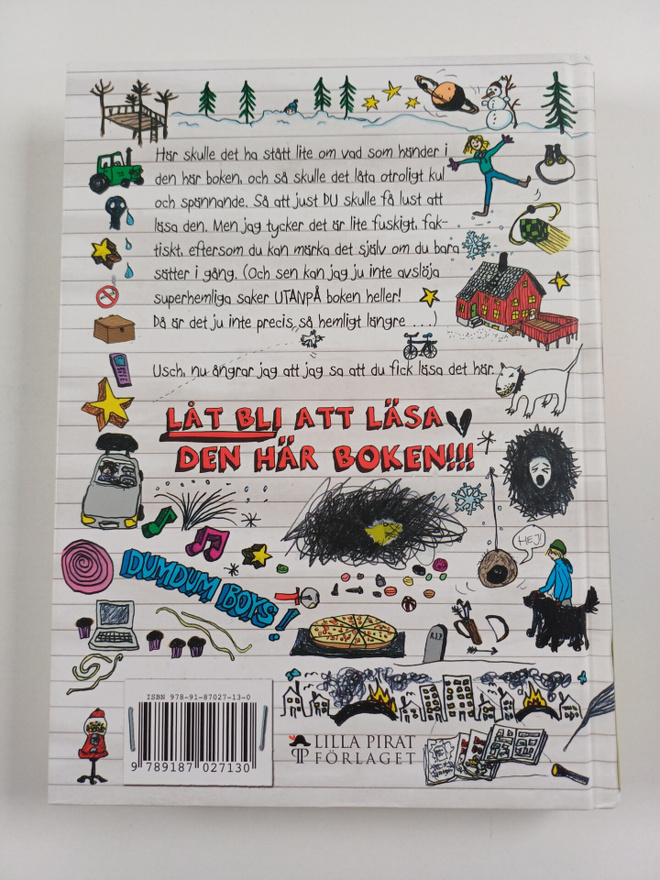 Här skulle det ha stått lite om vad som händer i
den här boken, och så skulle det låta otroligt kul
och spännande. Så att just DU skulle få lust att
läsa den. Men jag tycker det är lite fuskigt, fak-
tiskt, eftersom du kan märka det själv om du bara
sätter i gång. (Och sen kan jag ju inte avslöja
superhemliga saker UTANPÅ boken heller!
Då är det ju inte precis så hemligt längre ....)
Usch, nu ångrar jag att jag sa att du fick läsa det här.
LÅT BLI ATT LÄSA
DEN HÄR BOKEN!!!
HEJ!
DUMDUM BOYS!
R.I.P
ISBN 978-91-87027-13-0
9 789187 027130
LILLA PIRAT
FÖRLAGET